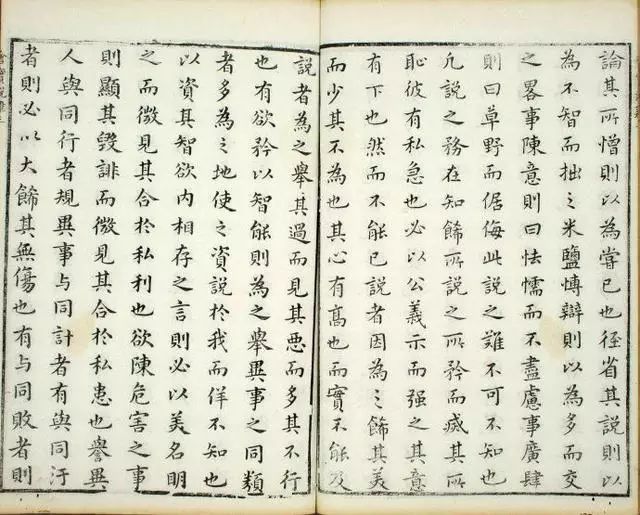 論其所憎則以為嘗已也徑省其説則以
為不智而拙之米鹽愽辯則以為多而交
之畧事陳意則曰怯懦而不盡慮事廣肆
則曰草野而倨侮此説之難不可不知也
凢説之務在知飾所説之所矜而滅其所
恥彼有私急也必以公義示而强之其意
有下也然而不能已説者因為之飾其美
而少其不為也其心有髙也而實不能及
説者為之舉其過而見其悪而多其不行
也有欲矜以智能則為之舉異事之同類
者多為之地使之資説於我而佯不知也
以資其智欲内相存之言則必以美名明
之而微見其合於私利也欲陳危害之事
則顯其毀誹而微見其合於私患也譽異
人與同行者規異事与同計者有與同汙
者則必以大飾其無傷也有与同敗者則